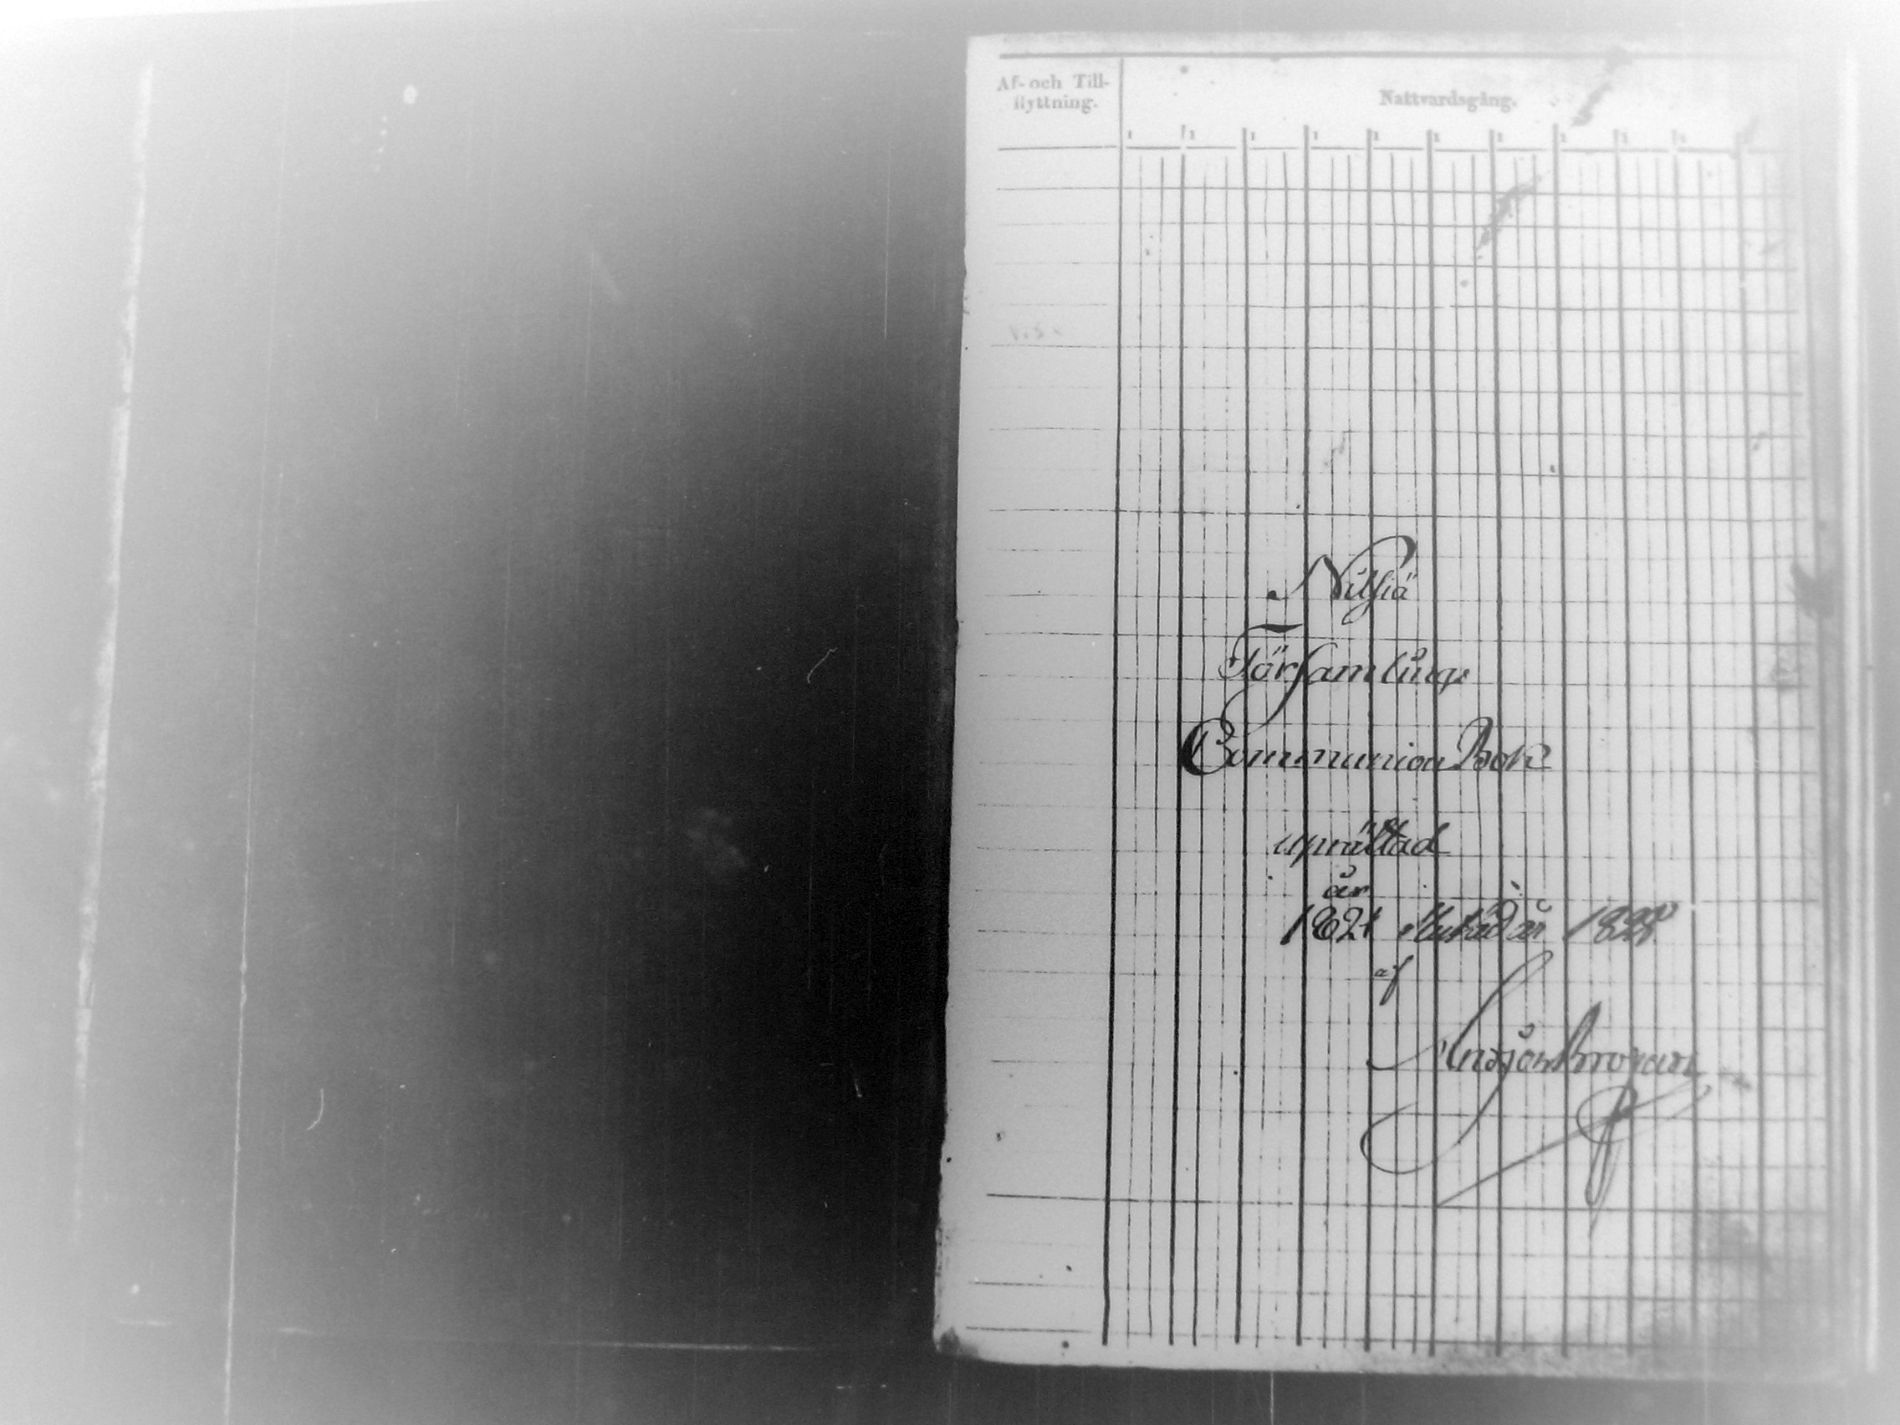 Af- och Till-
flyttning.
Nattvardsgång.
1 1 1 1 1 1 1 1 1 1
Nilsiä
Församlings
Communion Bok
uprättad
år
1821 Slutad år 1828
af